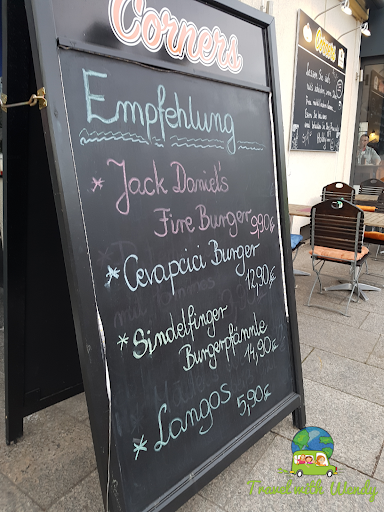 Corners
Empfehlung
* Jack Daniel's
Fire Burger 9,90€
* Cevapcici Burger
12,90€
* Sindelfinger
Burgerpfännle
14,90€
* Langos 5,90€
Corners
Travel with Wendy